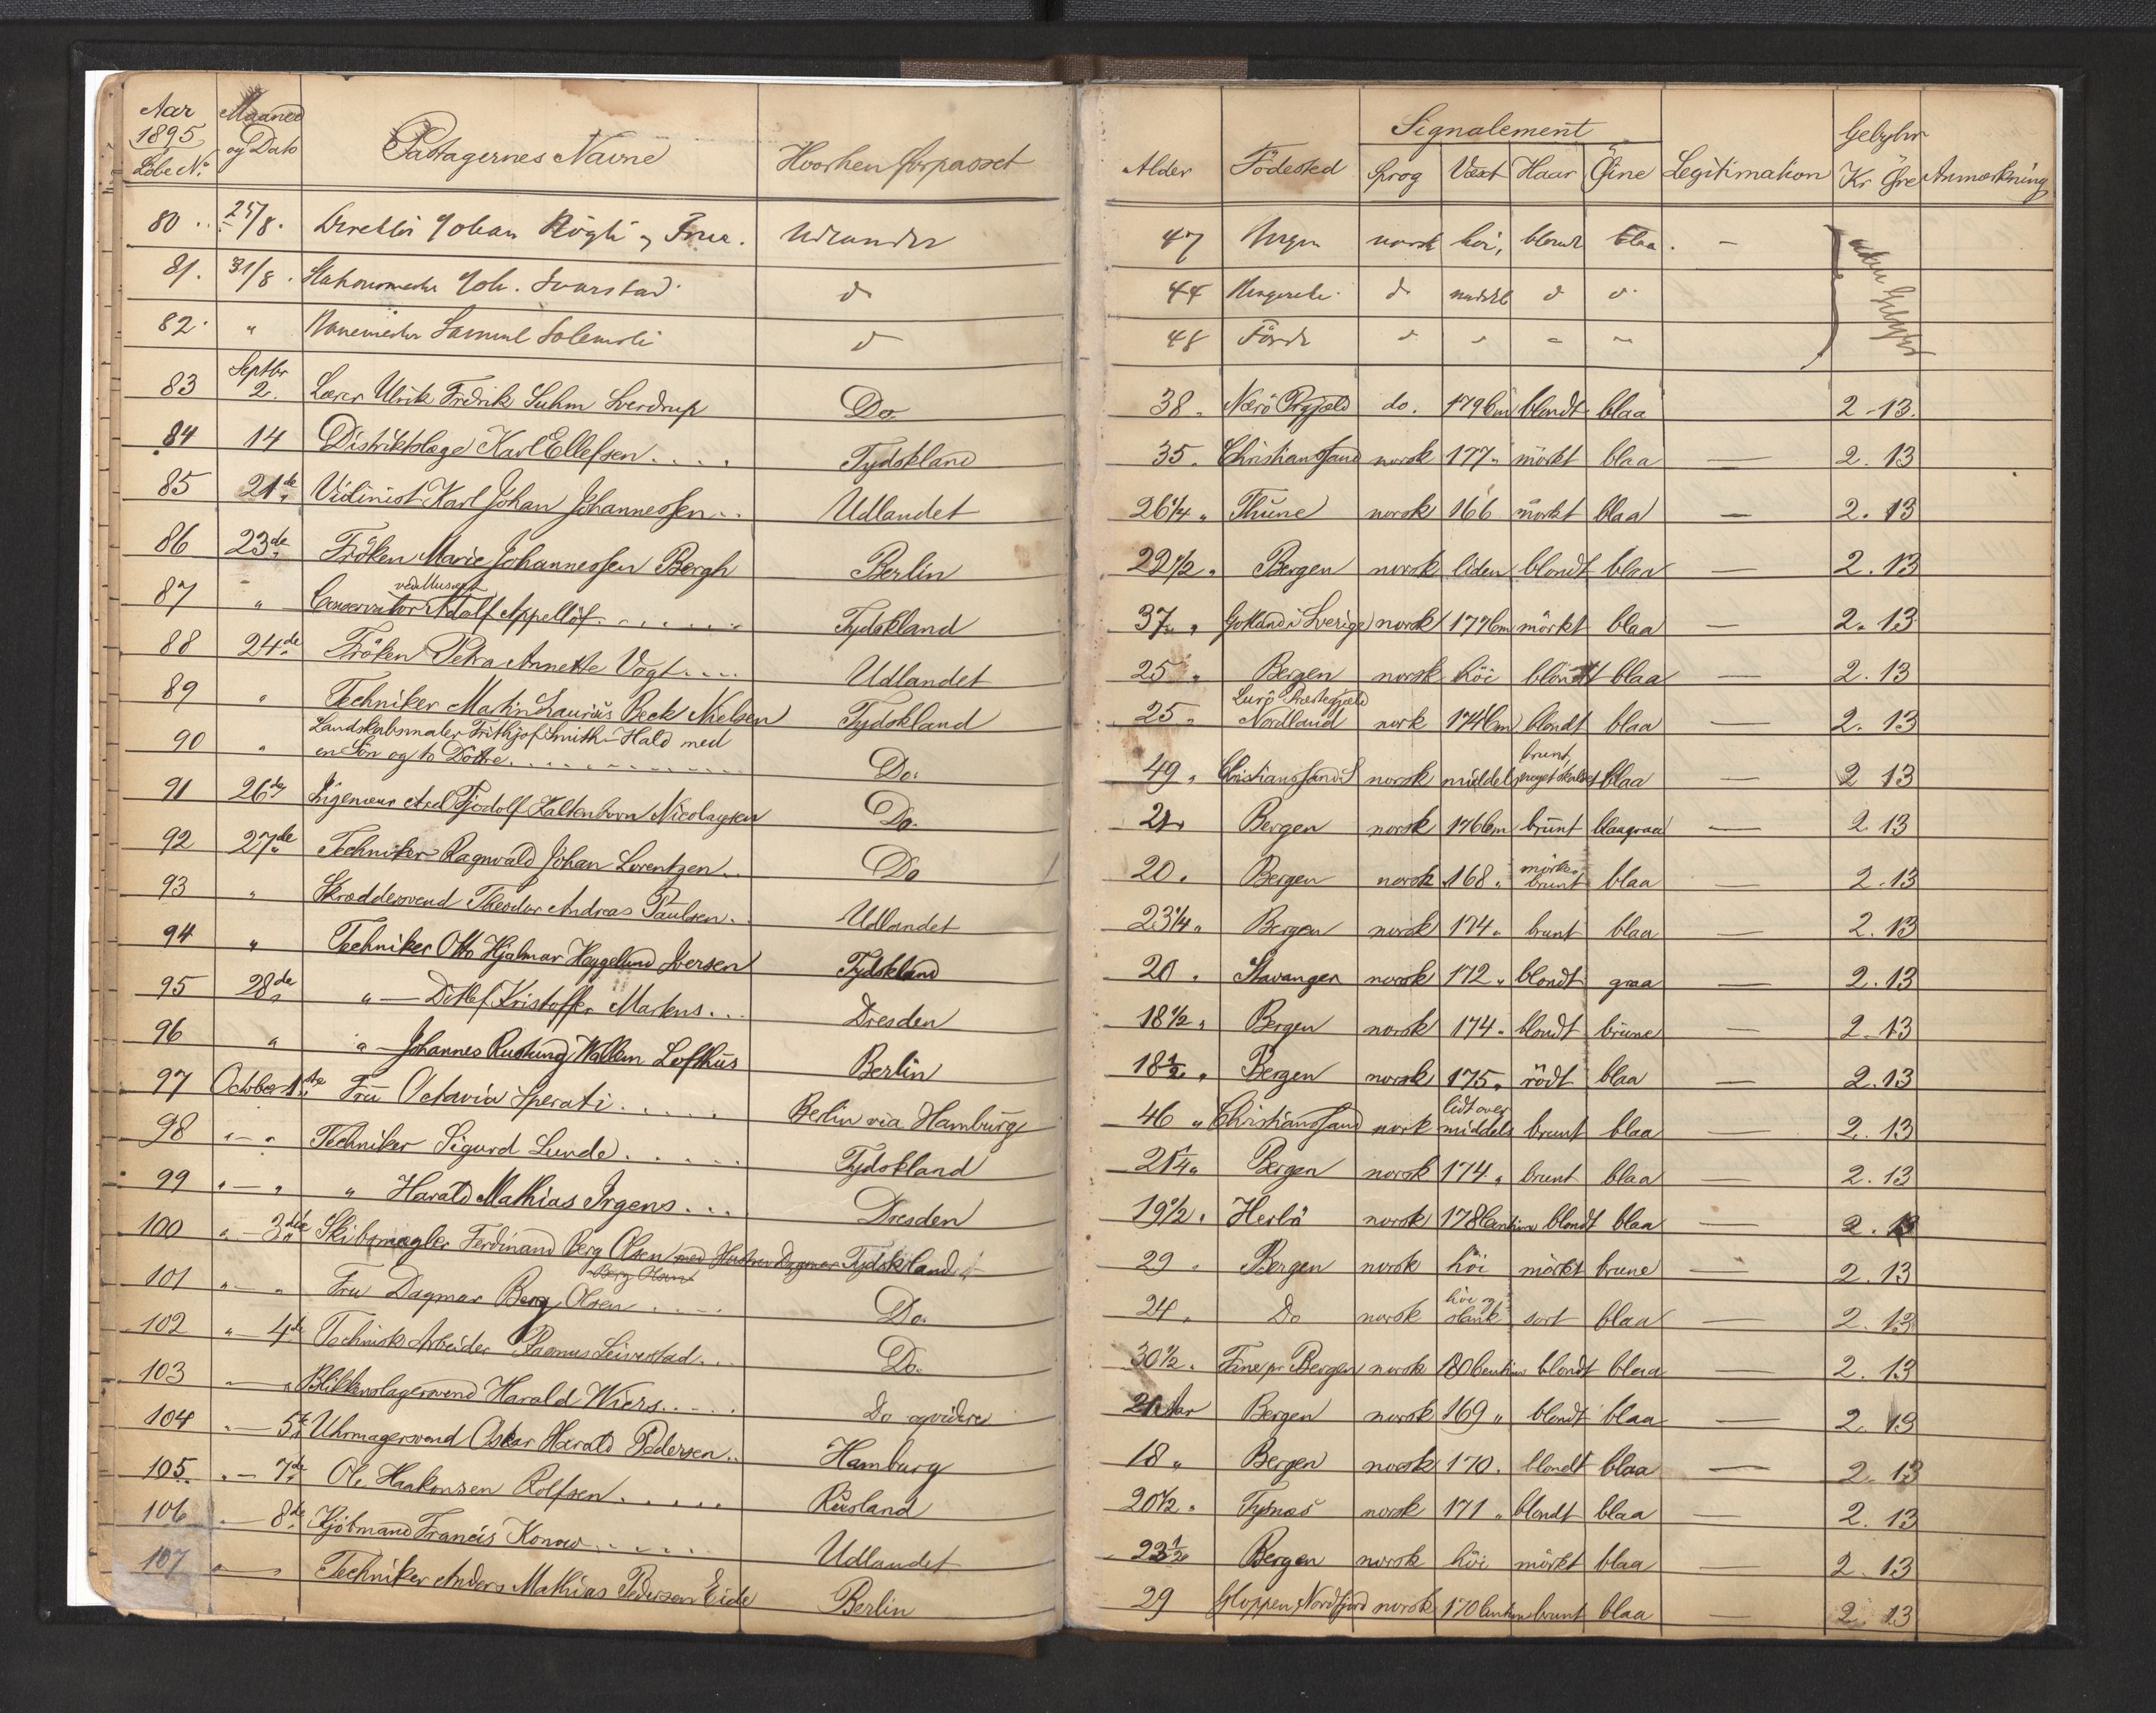 Aar 1895 Løbe No. Maaned og Dato Pastagernes Navne Hvorhen forpasset Alder Födested Signalement Sprog Væxt Haar Öine Legitimation Gebyhr Kr Öre Anmærkning
80 25/8 Johan og Frue. 47 norsk höi, blondt blaa. —
81. 31/8. Joh. do 44 do do do
82. " Samuel do 48 Förde " " " "
83 Septbr 2. Lærer Ulrik Fredrik Suhm Sverdrup Do. 38. Nærö Prgjæld do. 179 Cm blondt blaa 2-13.
84 14 Distriktslæge Karl Ellefsen.... Tydskland 35. Christianssand norsk 177" mörkt blaa — 2. 13
85 21de Violinist Karl Johan Johannessen.. Udlandet 26 1/4 " Thüne norsk 166 mörkt blaa — 2. 13
86 23de Fröken Marie Johannessen Bergh Berlin 22 1/2 " Bergen norsk liden blondt blaa — 2. 13
87 " Conservator ved Museet Adolf Appellöf...... Tydskland 37 " Gotland i Sverige norsk 177 Cm mörkt blaa — 2. 13
88 24de Fröken Petra Annette Vogt.... Udlandet 25 " Bergen norsk höi blondt blaa — 2. 13
89 " Techniker Matin Lauriüs Beck Nielsen Tydskland 25 " Lurö Prestegjæld Nordland nork 174 Cm blondt blaa — 2. 13
90 " Landskabsmaler Frithjof Smith-Hald med
en Sön og to Dötre............ Do. 49 " Christianssand S norsk middels brunt, meget skaldet blaa — 2 13
91 26de Ingeniør Axel Tjodolf Kaltenborn Nicolaysen Do. Bergen norsk 176 Cm brünt blaagraa — 2 13
92 27de Techniker Ragnvald Johan Lorentzen.. Do 20. Bergen norsk 168. mörke brunt blaa — 2.13
93 " Skræddersvend Theodor Andreas Paulsen.. Udlandet 23 1/4 " Bergen norsk 174 " brunt blaa — 2. 13
94 " Techniker Otto Hjalmar Heggelund Iversen Tydskland 20 " Stavanger norsk 172 " blondt graa — 2. 13
95 28de " — Detlef Kristoffer Martens... Dresden 18 1/2 " Bergen norsk 174 " blondt brüne — 2-13
96 " " — Johannes Rustung Wallem Lofthüs Berlin 18 1/2 " Bergen norsk 175 " rödt blaa — 2. 13
97 October 1ste Frü Octavia Sperati..... Berlin via Hamburg 46 " Christianssand nork lidt over middels brunt blaa — 2. 13
98 " — " Techniker Sigurd Lunde...... Tydskland 21 1/4 " Bergen norsk 174 " brunt blaa — 2. 13
99 " — " " Harald Mathias Irgens.... Dresden 19 1/2 " Herlö norsk 178 Centim blondt blaa — 2. 13
100 " — 3die Skibsmægler Ferdinand Berg Olsen med Hustru Dagmar Berg Olsen Tydskland 29 " Bergen norsk höi mörkt brune — 2. 13
101 " — " Fru Dagmar Berg Olsen.... Do. 24 " Do norsk höi og slank sort blaa — 2. 13
102 " — 4de Technisk Arbeider Rasmus Seiverstad... Do. 30 1/2 " Fane pr Bergen norsk 180 Centim blondt blaa 2. 13
103 " — " Blikkenslagersvend Harald Wiers..... Do og videre 21 Aar Bergen norsk 169 " blondt blaa — 2. 13
104 " — 5te Uhrmagersvend Oskar Harald Pedersen.. Hamburg 18 " Bergen norsk 170. blondt blaa — 2. 13
105 " — 7de Ole Haakonsen Rolfsen..... Rüsland 20 1/2 " Tysnæs norsk 171 " blondt blaa — 2. 13
106 " — 8de Kjöbmand Francis Konow..... Udlandet 23 1/2 Bergen norsk höi mörkt blaa — 2. 13
107 " — " Techniker Anders Mathias Pedersen Eide Berlin 29 Gloppen, Nordfjord norsk 170 Centim brunt blaa — 2. 13